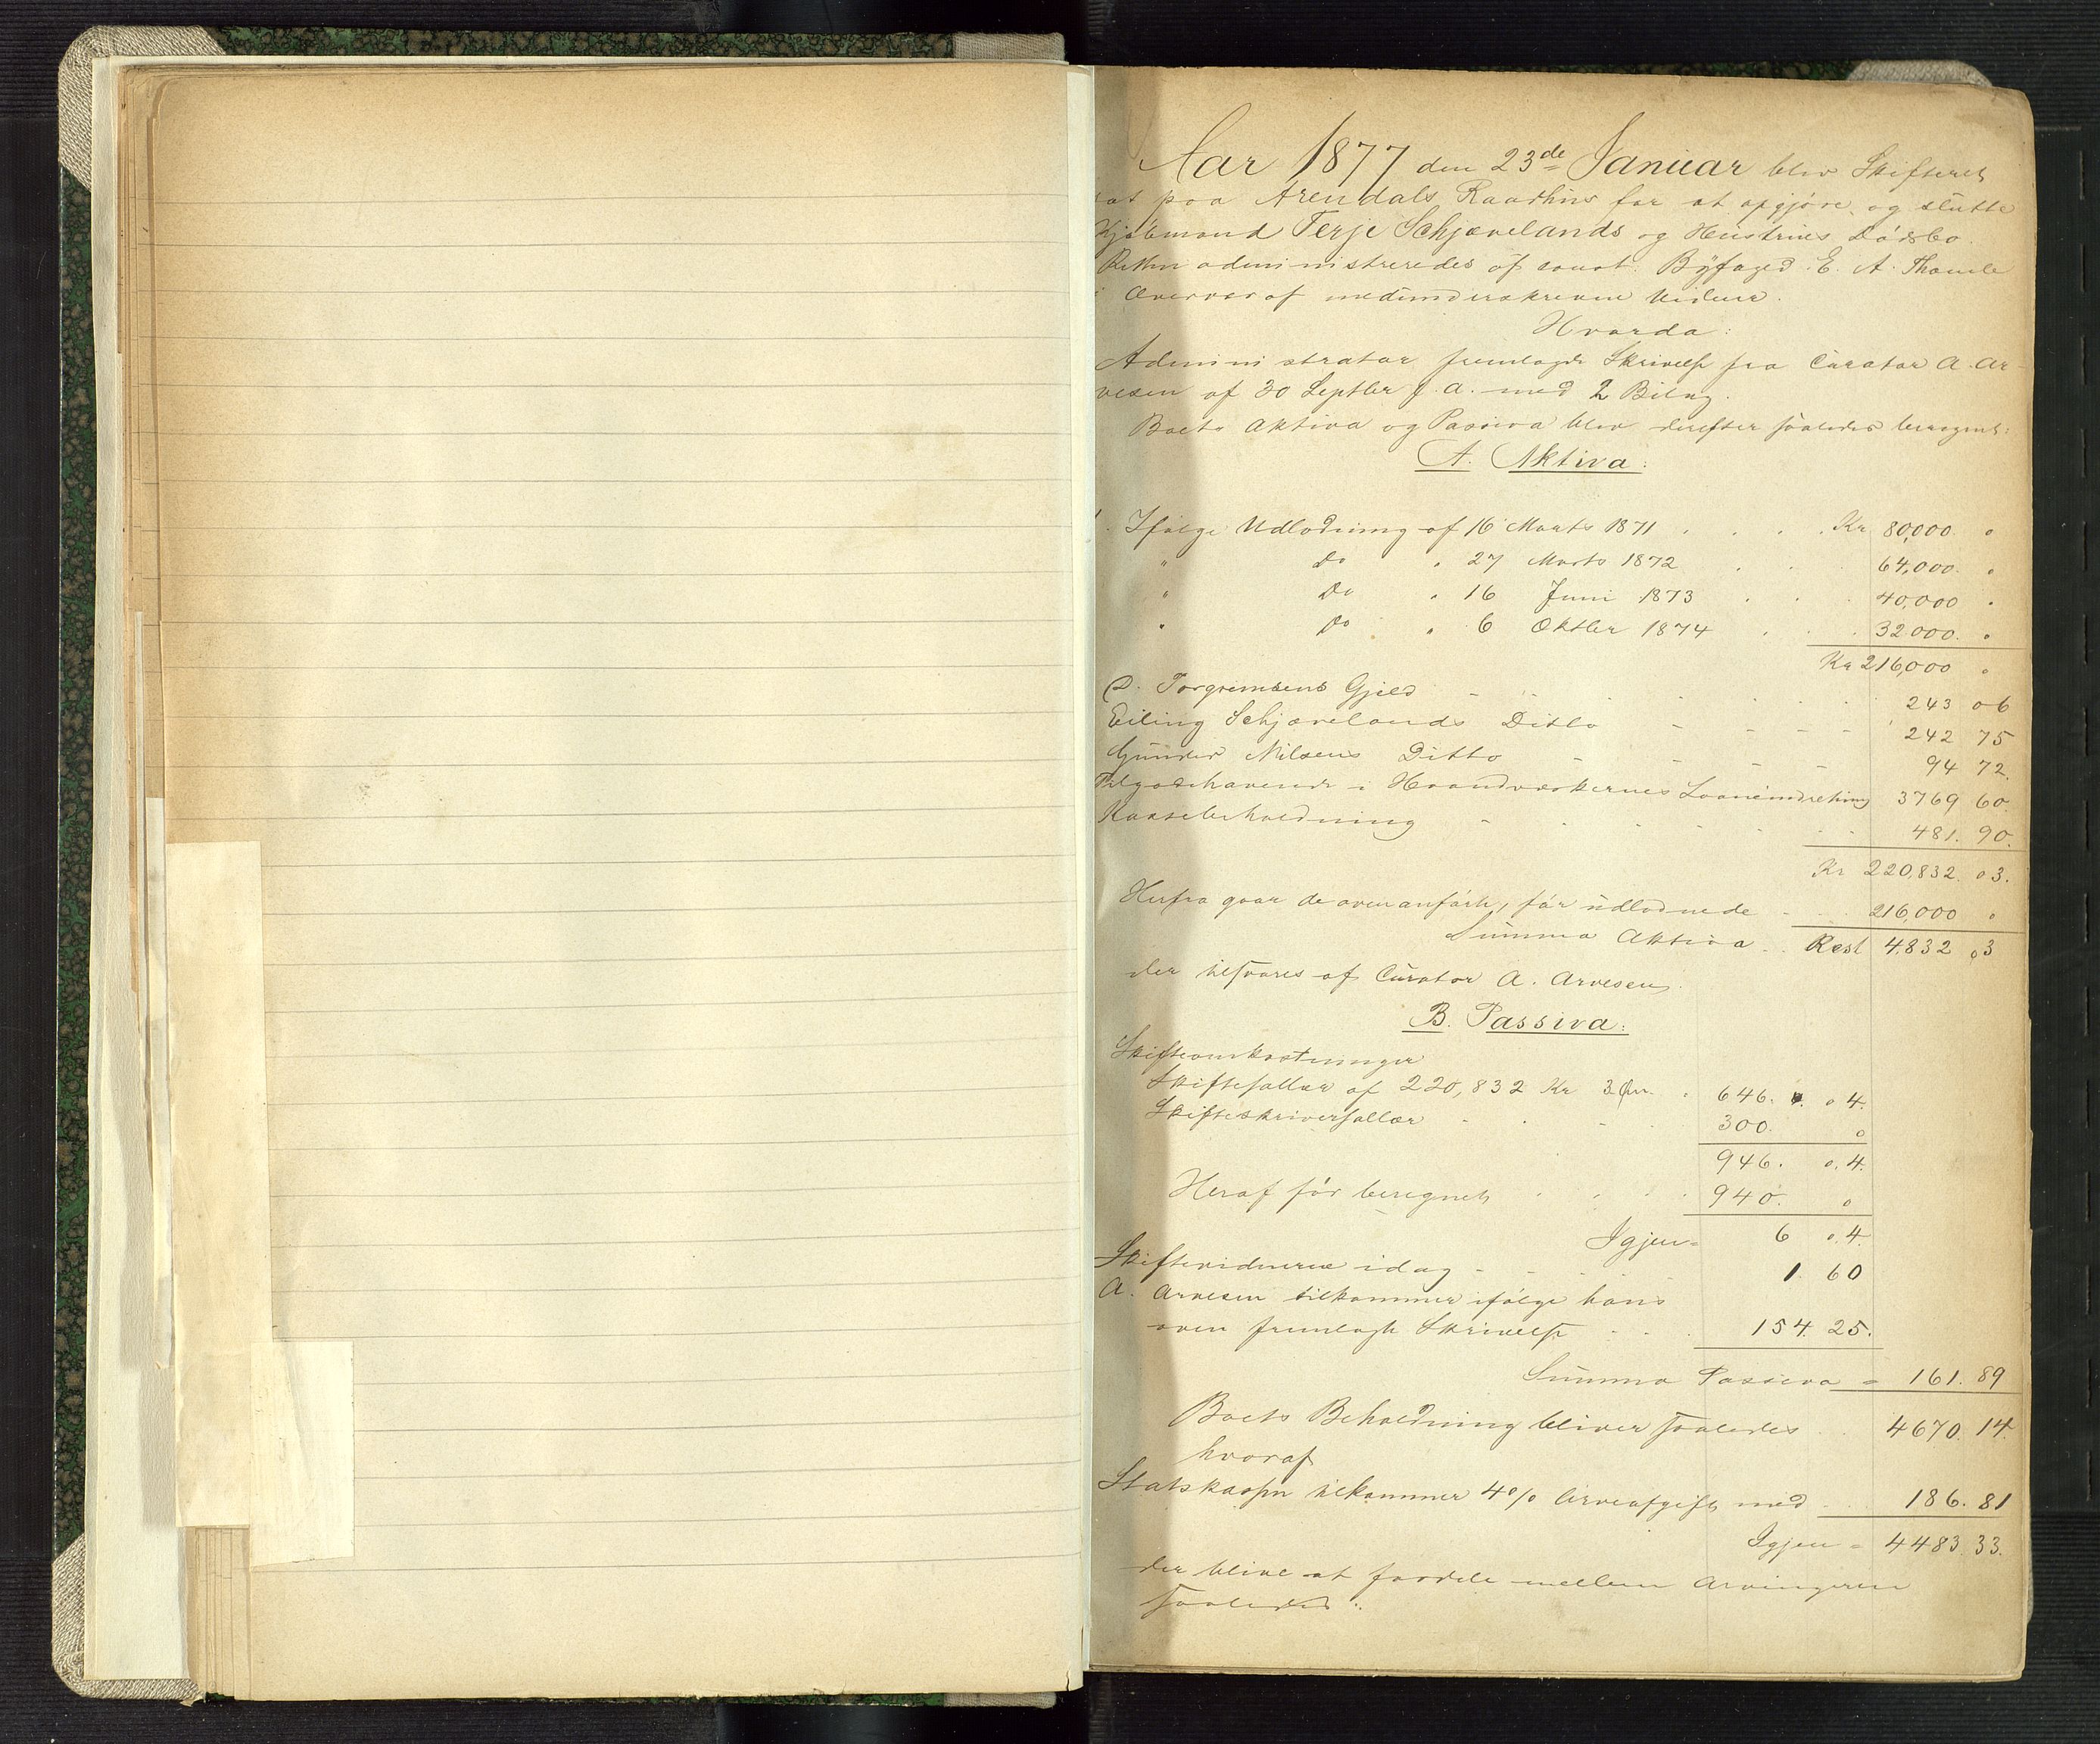 Aar 1877 den 23de Januar blev Skifteret
sat paa Arendals Raadhus for at opgjöre og slutte
Kjöbmand Terje Schjævelands og Hustrues Dödsbo.
Retten administreredes af const. Byfoged E. A. Thomle
i Overvær af medunderskrevne Vidner.
Hvorda:
Administrator fremlagde Skrivelse fra Curator A. Ar-
vesen af 30 Septbr f. A. med 2 Bilag.
Boets Aktiva og Passiva blev derefter saaledes beregnet:
A. Aktiva:
1. Ifölge Udlodning af 16 Marts 1871 . . . . Kr 80,000 "
" Do " 27 Marts 1872 . . 64,000 "
" Do " 16 Juni 1873 . . 40,000 "
" Do " 6 Oktbr 1874 . . 32,000 "
Kr 216,000 "
Torgrimsens Gjeld - - 243 06
Eiling Schjævelands Ditto - - 242 75
Gunder Nilsens Ditto - - 94 72.
Tilgodehavende i Haandværkernes Laaneindretning 3769 60.
Kassebeholdning - - 481. 90.
Kr 220,832. 03.
Herfra gaar de ovenanförte, för udlodnede - 216,000 "
Summa Aktiva - Rest 4,832 03
der tilsvares af Curator A. Arvesen.
B. Passiva:
Skifteomkostninger
Skiftesallær af 220,832 Kr 3 Öre. " 646. 04.
Skifteskriversallær - - 300. "
946. 04.
Heraf för beregnet . . . 940. "
Igjen = 6 04.
Skiftevidnerne idag - - 1. 60
A. Arvesen tilkommer ifölge hans
oven fremlagte Skrivelse . . . 154. 25.
Summa Passiva = 161. 89
Boets Beholdning bliver saaledes 4670. 14.
hvoraf
Statskassen tilkommer 4% Arveafgift med - 186. 81
Igjen = 4483. 33.
der blive at fordele mellem Arvingerne
saaledes: